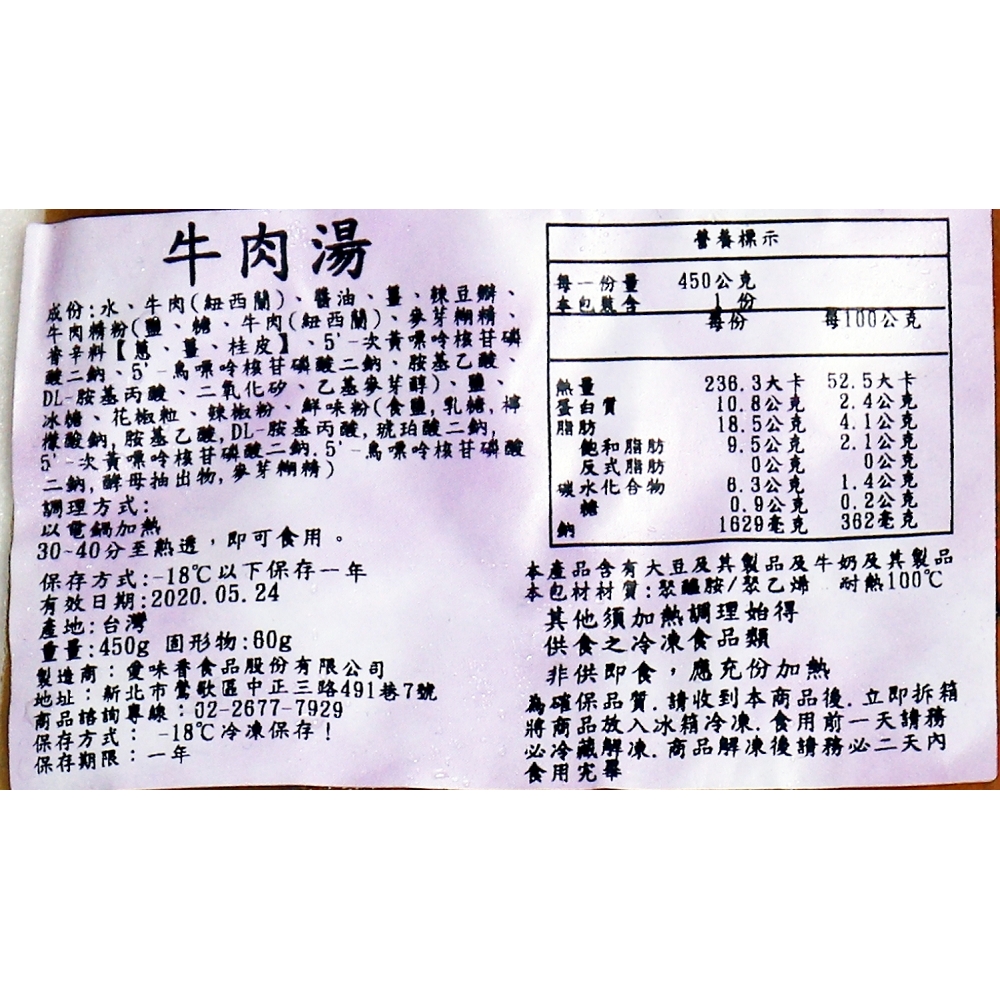 牛肉湯
成份:水、牛肉(紐西蘭)、醬油、薑、辣豆瓣、
牛肉精粉(鹽、糖、牛肉(紐西蘭)、麥芽糊精、
香辛料【蔥、薑、桂皮】、5'-次黃嘌呤核苷磷
酸二鈉、5'-鳥嘌呤核苷磷酸二鈉、胺基乙酸、
DL-胺基丙酸、二氧化矽、乙基麥芽醇)、鹽、
冰糖、花椒粒、辣椒粉、鮮味粉(食鹽,乳糖,檸
檬酸鈉,胺基乙酸,DL-胺基丙酸,琥珀酸二鈉,
5'-次黃嘌呤核苷磷酸二鈉.5'-鳥嘌呤核苷磷酸
二鈉,酵母抽出物,麥芽糊精)
調理方式:
以電鍋加熱
30~40分至熟透，即可食用。
保存方式:-18℃以下保存一年
有效日期:2020.05.24
產地:台灣
重量:450g 固形物:60g
製造商:愛味香食品股份有限公司
地址:新北市鶯歌區中正三路491巷7號
商品諮詢專線:02-2677-7929
保存方式: -18℃冷凍保存!
保存期限:一年
營養標示
每一份量 450公克
本包裝含 1 份
每份 每100公克
熱量 236.3大卡 52.5大卡
蛋白質 10.8公克 2.4公克
脂肪 18.5公克 4.1公克
飽和脂肪 9.5公克 2.1公克
反式脂肪 0公克 0公克
碳水化合物 6.3公克 1.4公克
糖 0.9公克 0.2公克
鈉 1629毫克 362毫克
本產品含有大豆及其製品及牛奶及其製品
本包材材質:聚醯胺/聚乙烯 耐熱100℃
其他須加熱調理始得
供食之冷凍食品類
非供即食，應充份加熱
為確保品質.請收到本商品後.立即拆箱
將商品放入冰箱冷凍.食用前一天請務
必冷藏解凍.商品解凍後請務必二天內
食用完畢